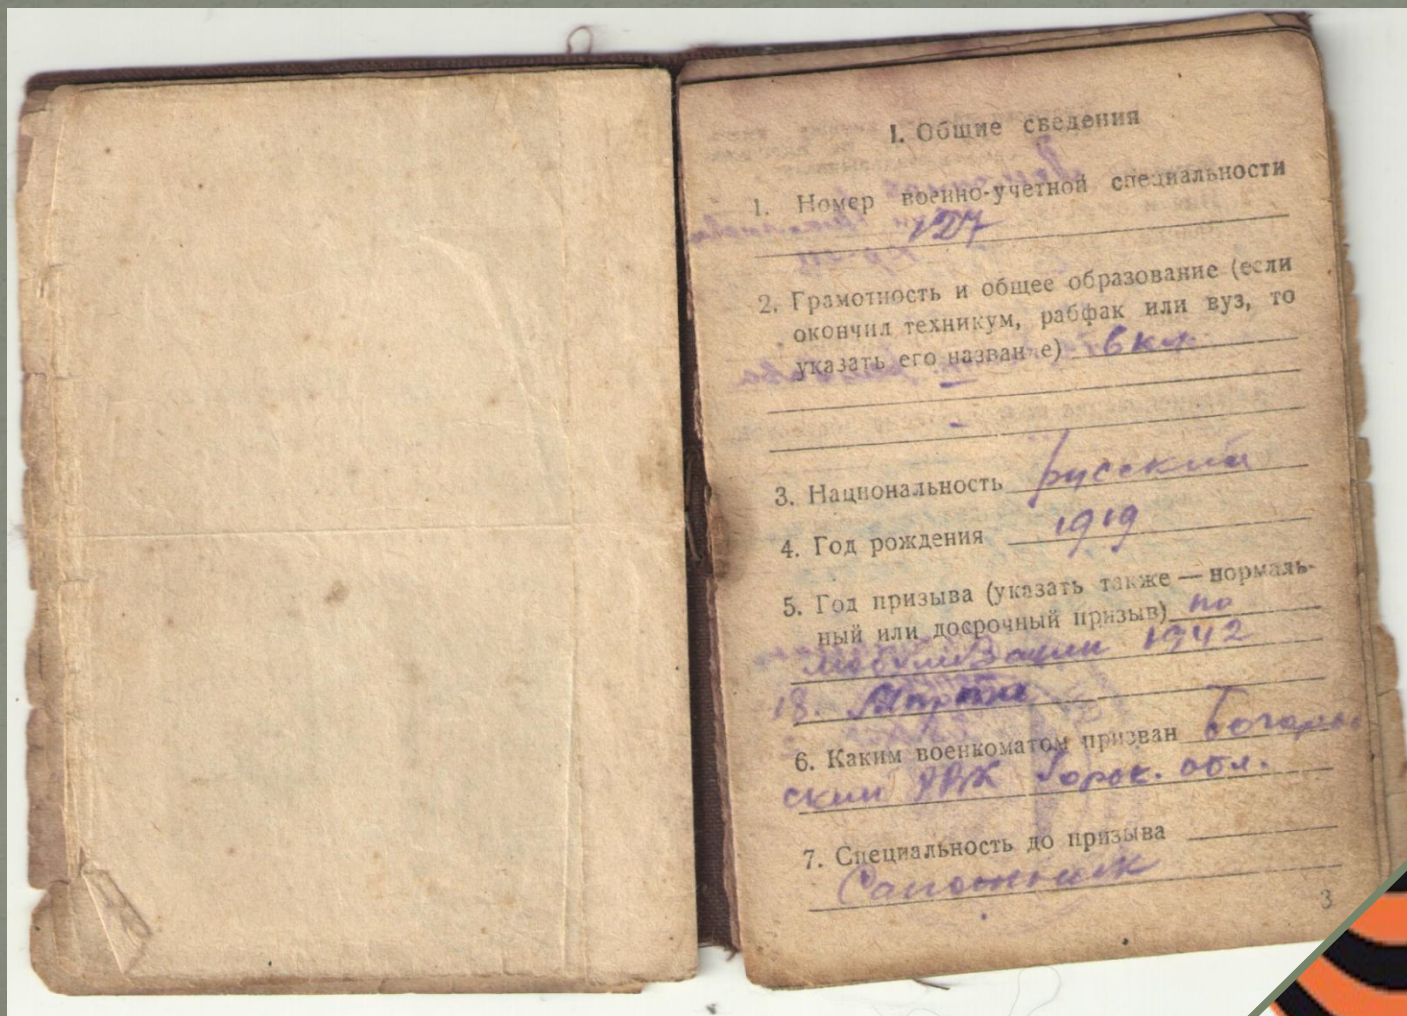 I. Общие сведения
1. Номер военно-учетной специальности
2. Грамотность и общее образование (если
окончил техникум, рабфак или вуз, то
указать его название) 6 кл.
3. Национальность русский
4. Год рождения 1919
5. Год призыва (указать также — нормаль-
ный или досрочный призыв) по
мобилизации 1942
18. Марта
6. Каким военкоматом призван
ским РВК Горьк. обл.
7. Специальность до призыва
Сапожник
3